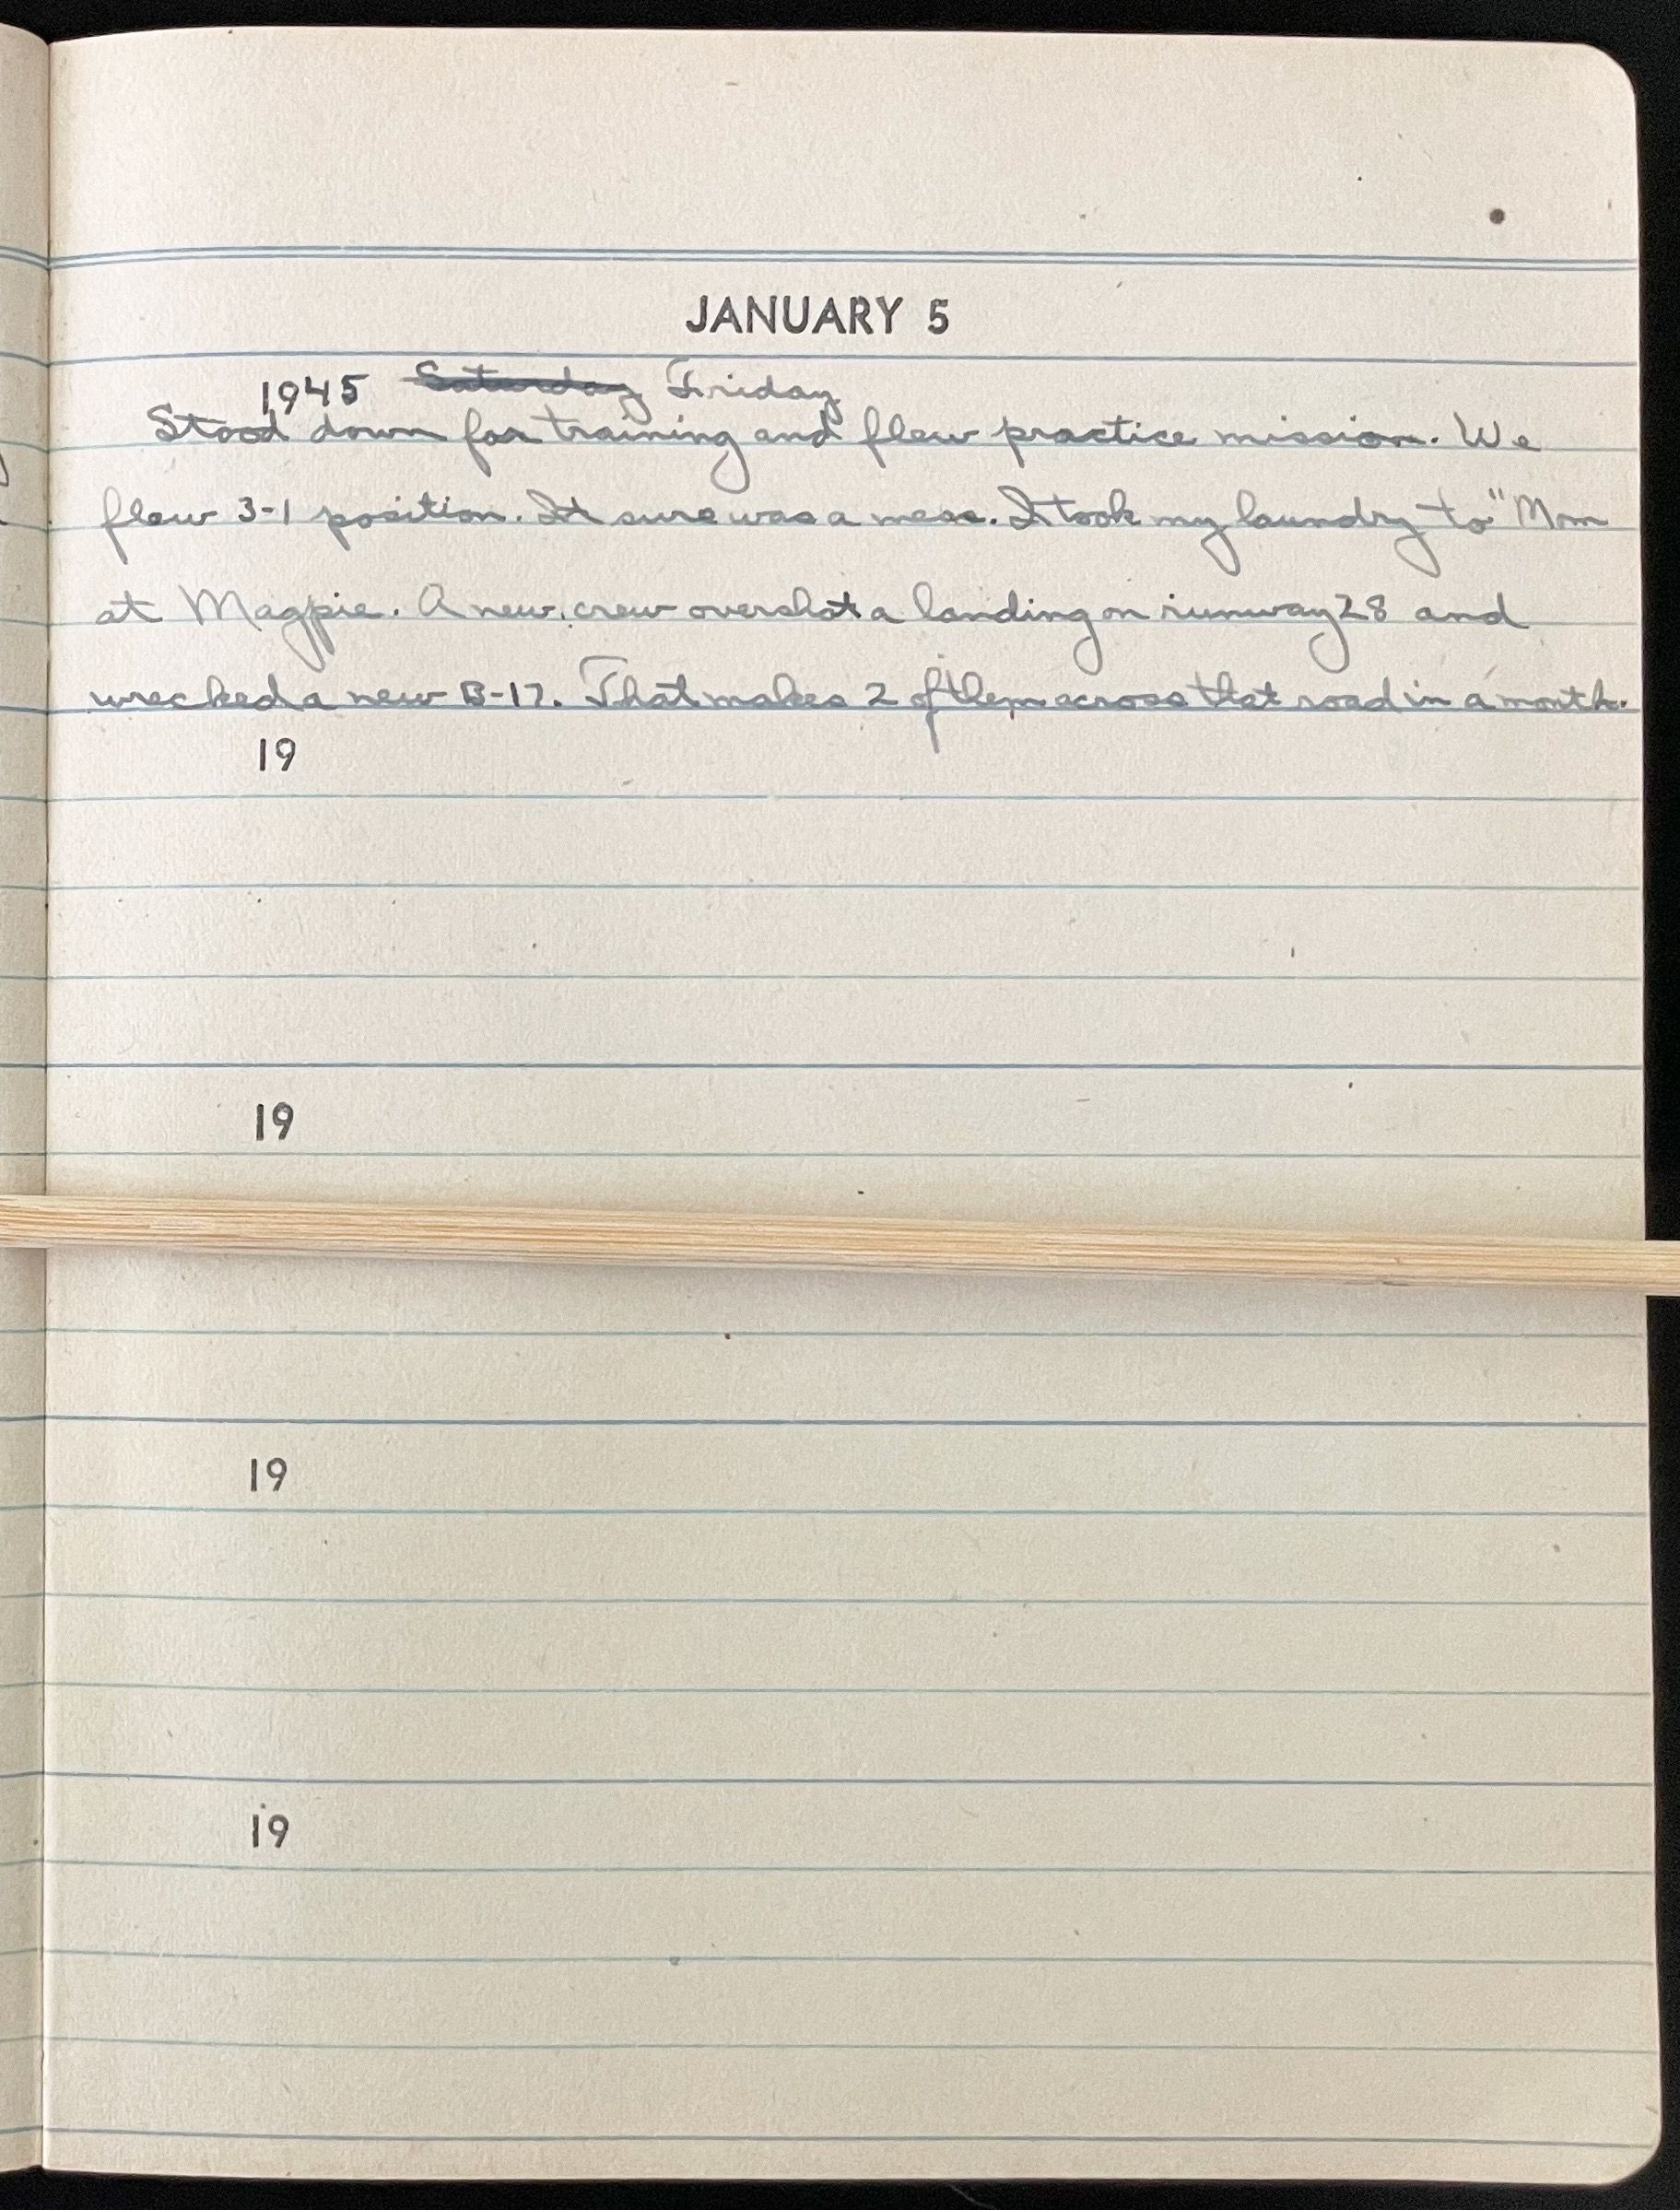 JANUARY 5
1945 Saturday Friday
Stood down for training and flew practice mission. We
flew 3-1 position. It sure was a mess. I took my laundry to "Mom
at Magpie. A new crew overshot a landing on runway 28 and
wrecked a new B-17. That makes 2 of them across that road in a month.
19
19
19
19